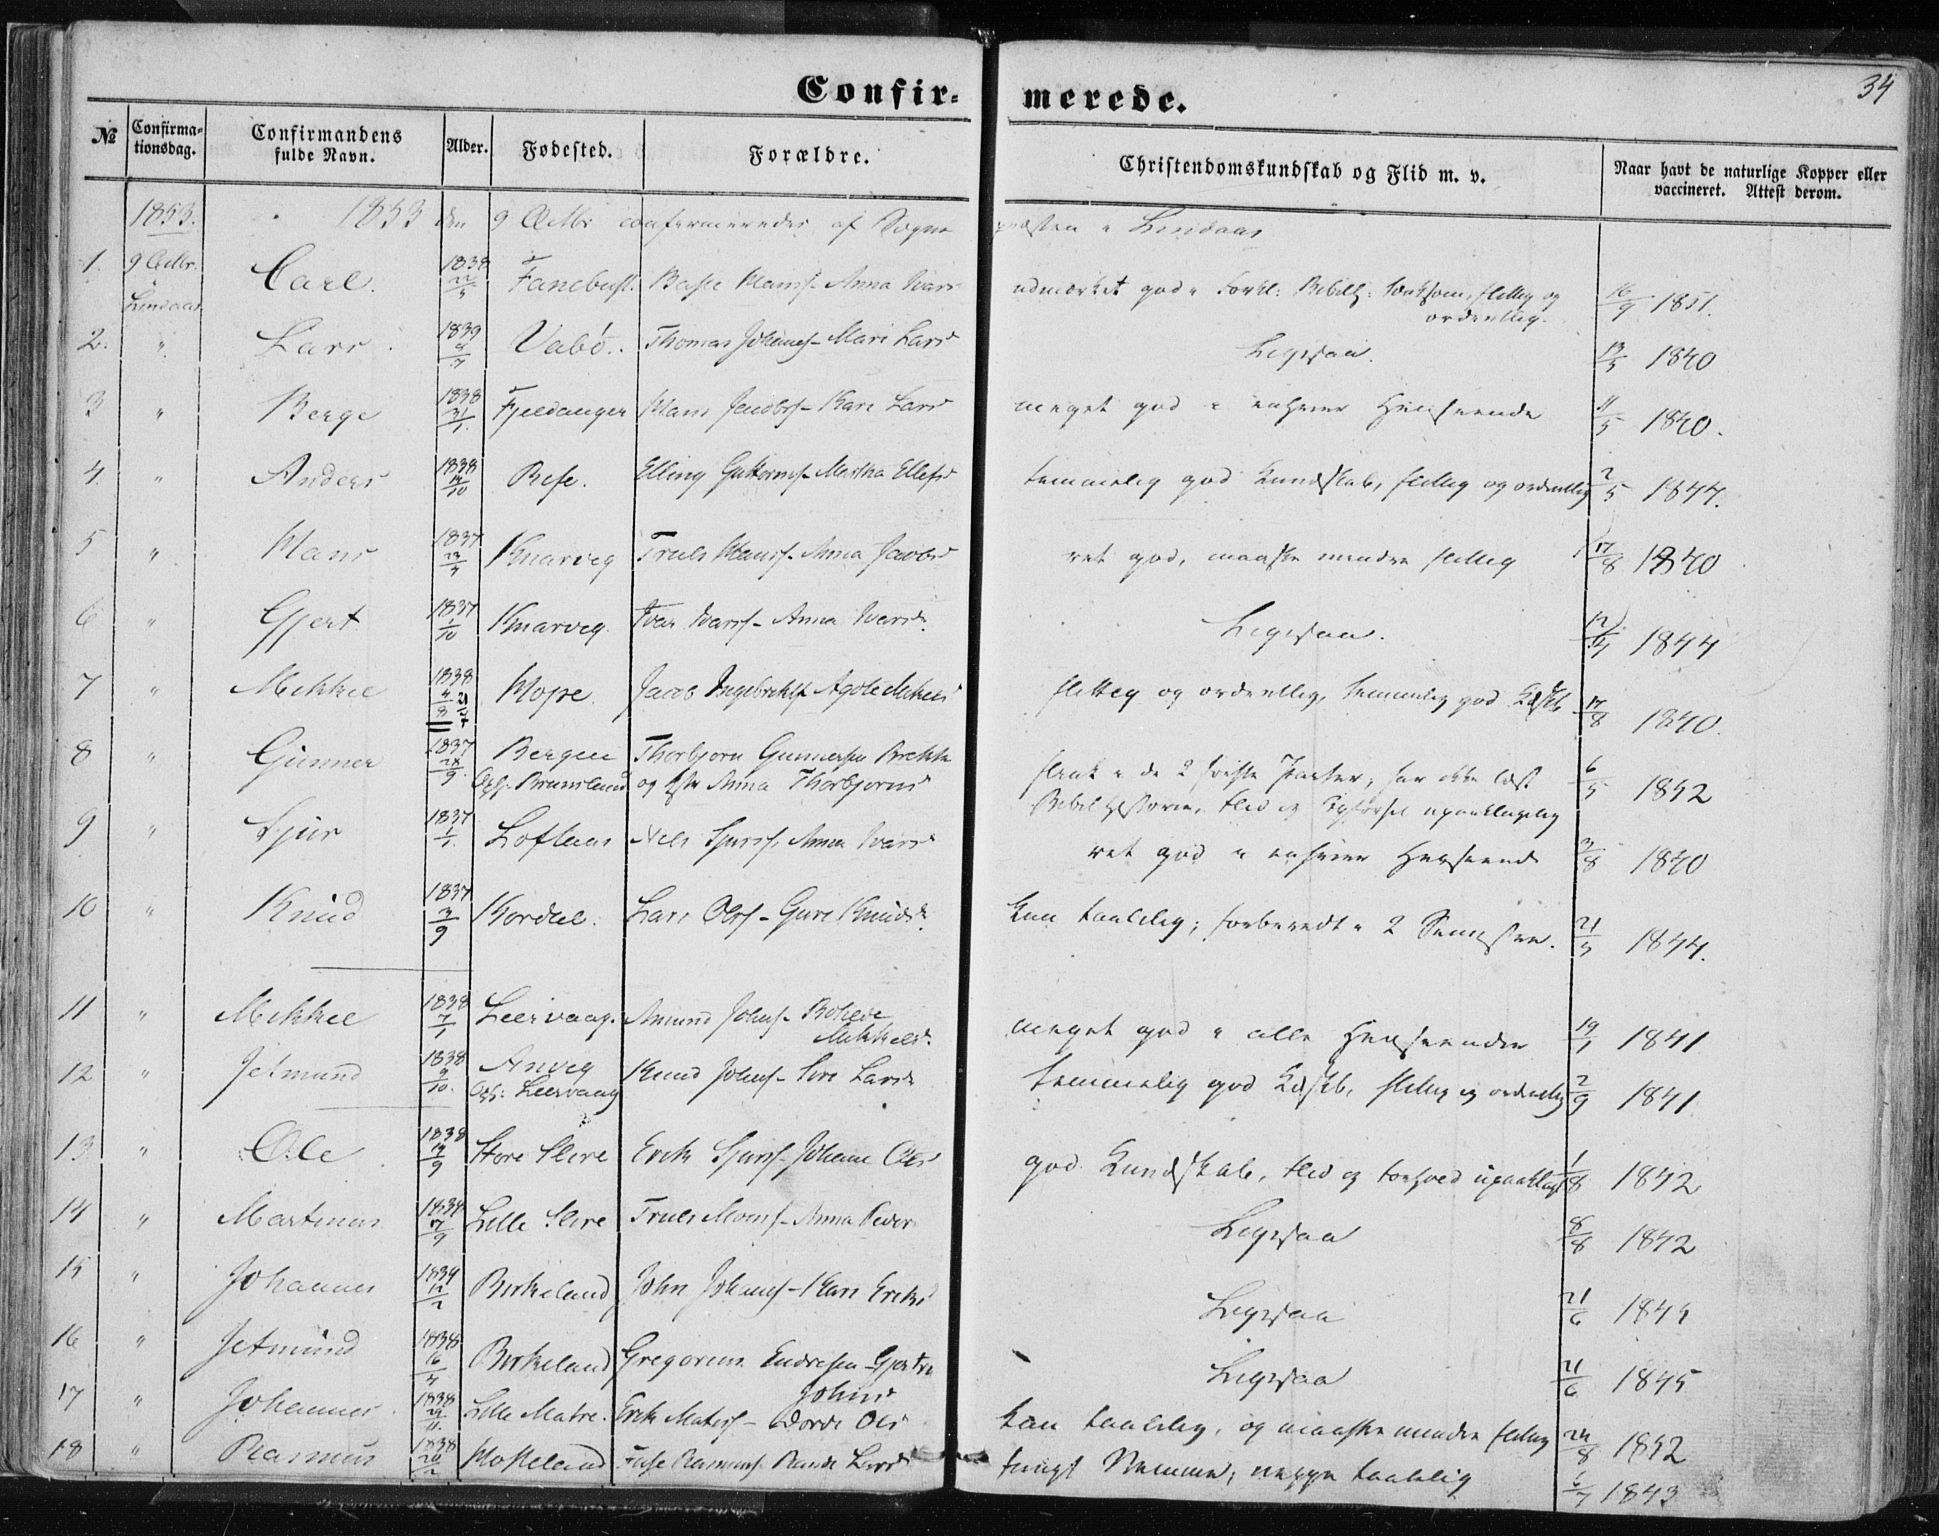 34
Confir-merede.
№ Confirma-tionsdag. Confirmandens fulde Navn. Alder. Fødested. Forældre. Christendomskundskab og Flid m. v. Naar havt de naturlige Kopper eller vaccineret. Attest derom.
1853. 1853 den 9 Octbr confirmeredes af Sogne præsten i Lindaas
1. 9 Octbr. Lindaas Carl. 1838 Fanebust. Hanss. Anna Ivars udmærket god Forkl: Bibelh: tænksom, flittig og ordentlig. 16/9 1851.
2. " Lars. 1839 Vabø. Thomas Johanness. Mari Larsd Ligesaa. 13/5 1840
3 " Berge 1838 31/1 Fjeldanger Hans Jacobs. Kari Larsd meget god i enhver Henseende 11/5 1840.
4. " Anders 1838 Elling Guttorms. Martha Ellefsd temmelig god Kundskab, flittig og ordentlig 2/5 1844.
5 " Hans 1837 Knarvig Truls Hanss. Anna Jacobsd ret god, maaske mindre flittig 17/8 1840
6 " Gjert 1837 1/10 Knarvig. Ivar Ivarss. Anna Iversd. Ligesaa. 1844
7 " Mikkel 1838 4/8 Hope. Jacob Ingebrikts. Mikkelsd flittig og ordentlig, temmelig god Kdskb 17/8 1840.
8 " Gunner 1837 Bergen Opf. Thorbjørn Gunnersen Brekke og Anna Thorbjørnsd i de 2 første Parter, har ikke læst Bibelhistorie, Flid og Opførsel upaaklagelig 6/5 1842
9 " Sjur 1837 1/1. Loftaas Nels Sjurss. Anna Ivarsd ret god i enhver Henseende 3/8 1840
10 " Knud 1837 3/9 Kordal. Lars Olss. Guri Knudsd. Kun taalelig; forberedt i 2 Semestre. 21/5 1844.
11 " Mikkel 1838 7/1 Leervaag. Amund Johns. Mikkelsd. meget god i alle Henseender 19/1 1841
12 " Jetmund 1838 Opf: Leervaag Knud Johns. Siri Larsd. temmelig god Kdskb, flittig og ordentlig 2/9 1841
13 " Ole 1838 19/9 Store Uere Erik Sjurss. Johanne Olsd god Kundskab, Flid og Forhold upaaklagl 1/8 1842
14 " Martinus Lille Truls Monss. Anna Peders Ligesaa 8/8 1842
15 " Johannes 1839 12/2 Birkeland John Johanness. Kari Eriksd Ligesaa 21/6 1845
16 " Jetmund 1838 16/4 Birkeland Gregorius Endresen Gjertru Johnsd Ligesaa 21/6 1845
17 " Johannes. 1838 29/11. Lille Matre. Erik Mates. Dorde Olsd kun taalelig, og maaske mindre flittig 24/8 1842
18 " Rasmus 1838 20/2 Hopeland Rasmuss. Larsd tungt Nemme, neppe taalelig 6/7 1843